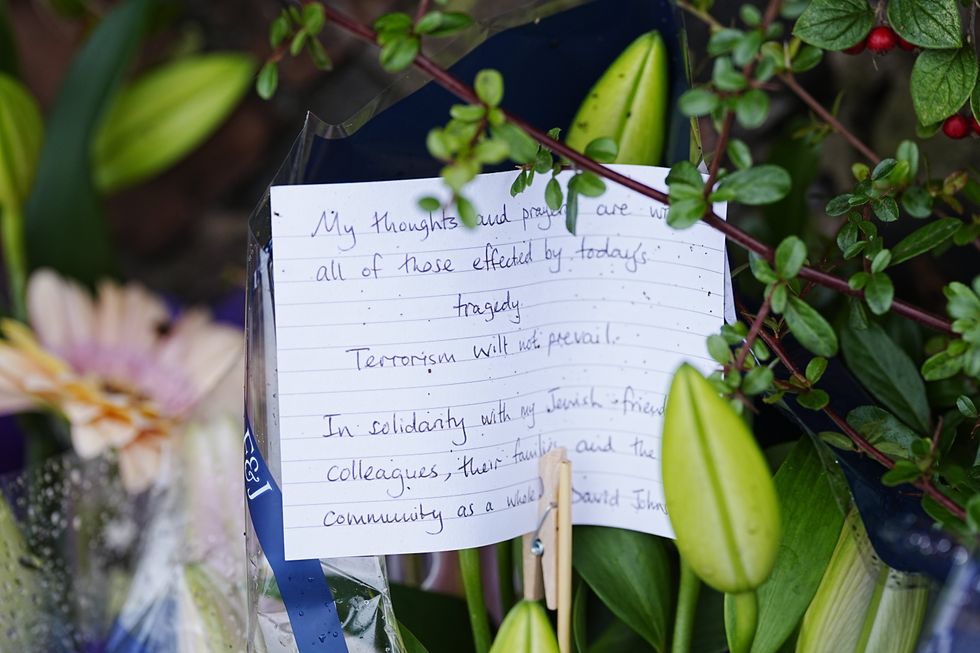 My thoughts and prayers are
all of those effected by today's
tragedy
Terrorism will not prevail.
In solidarity with my Jewish friend
colleagues, their families and the
community as a whole David Johns